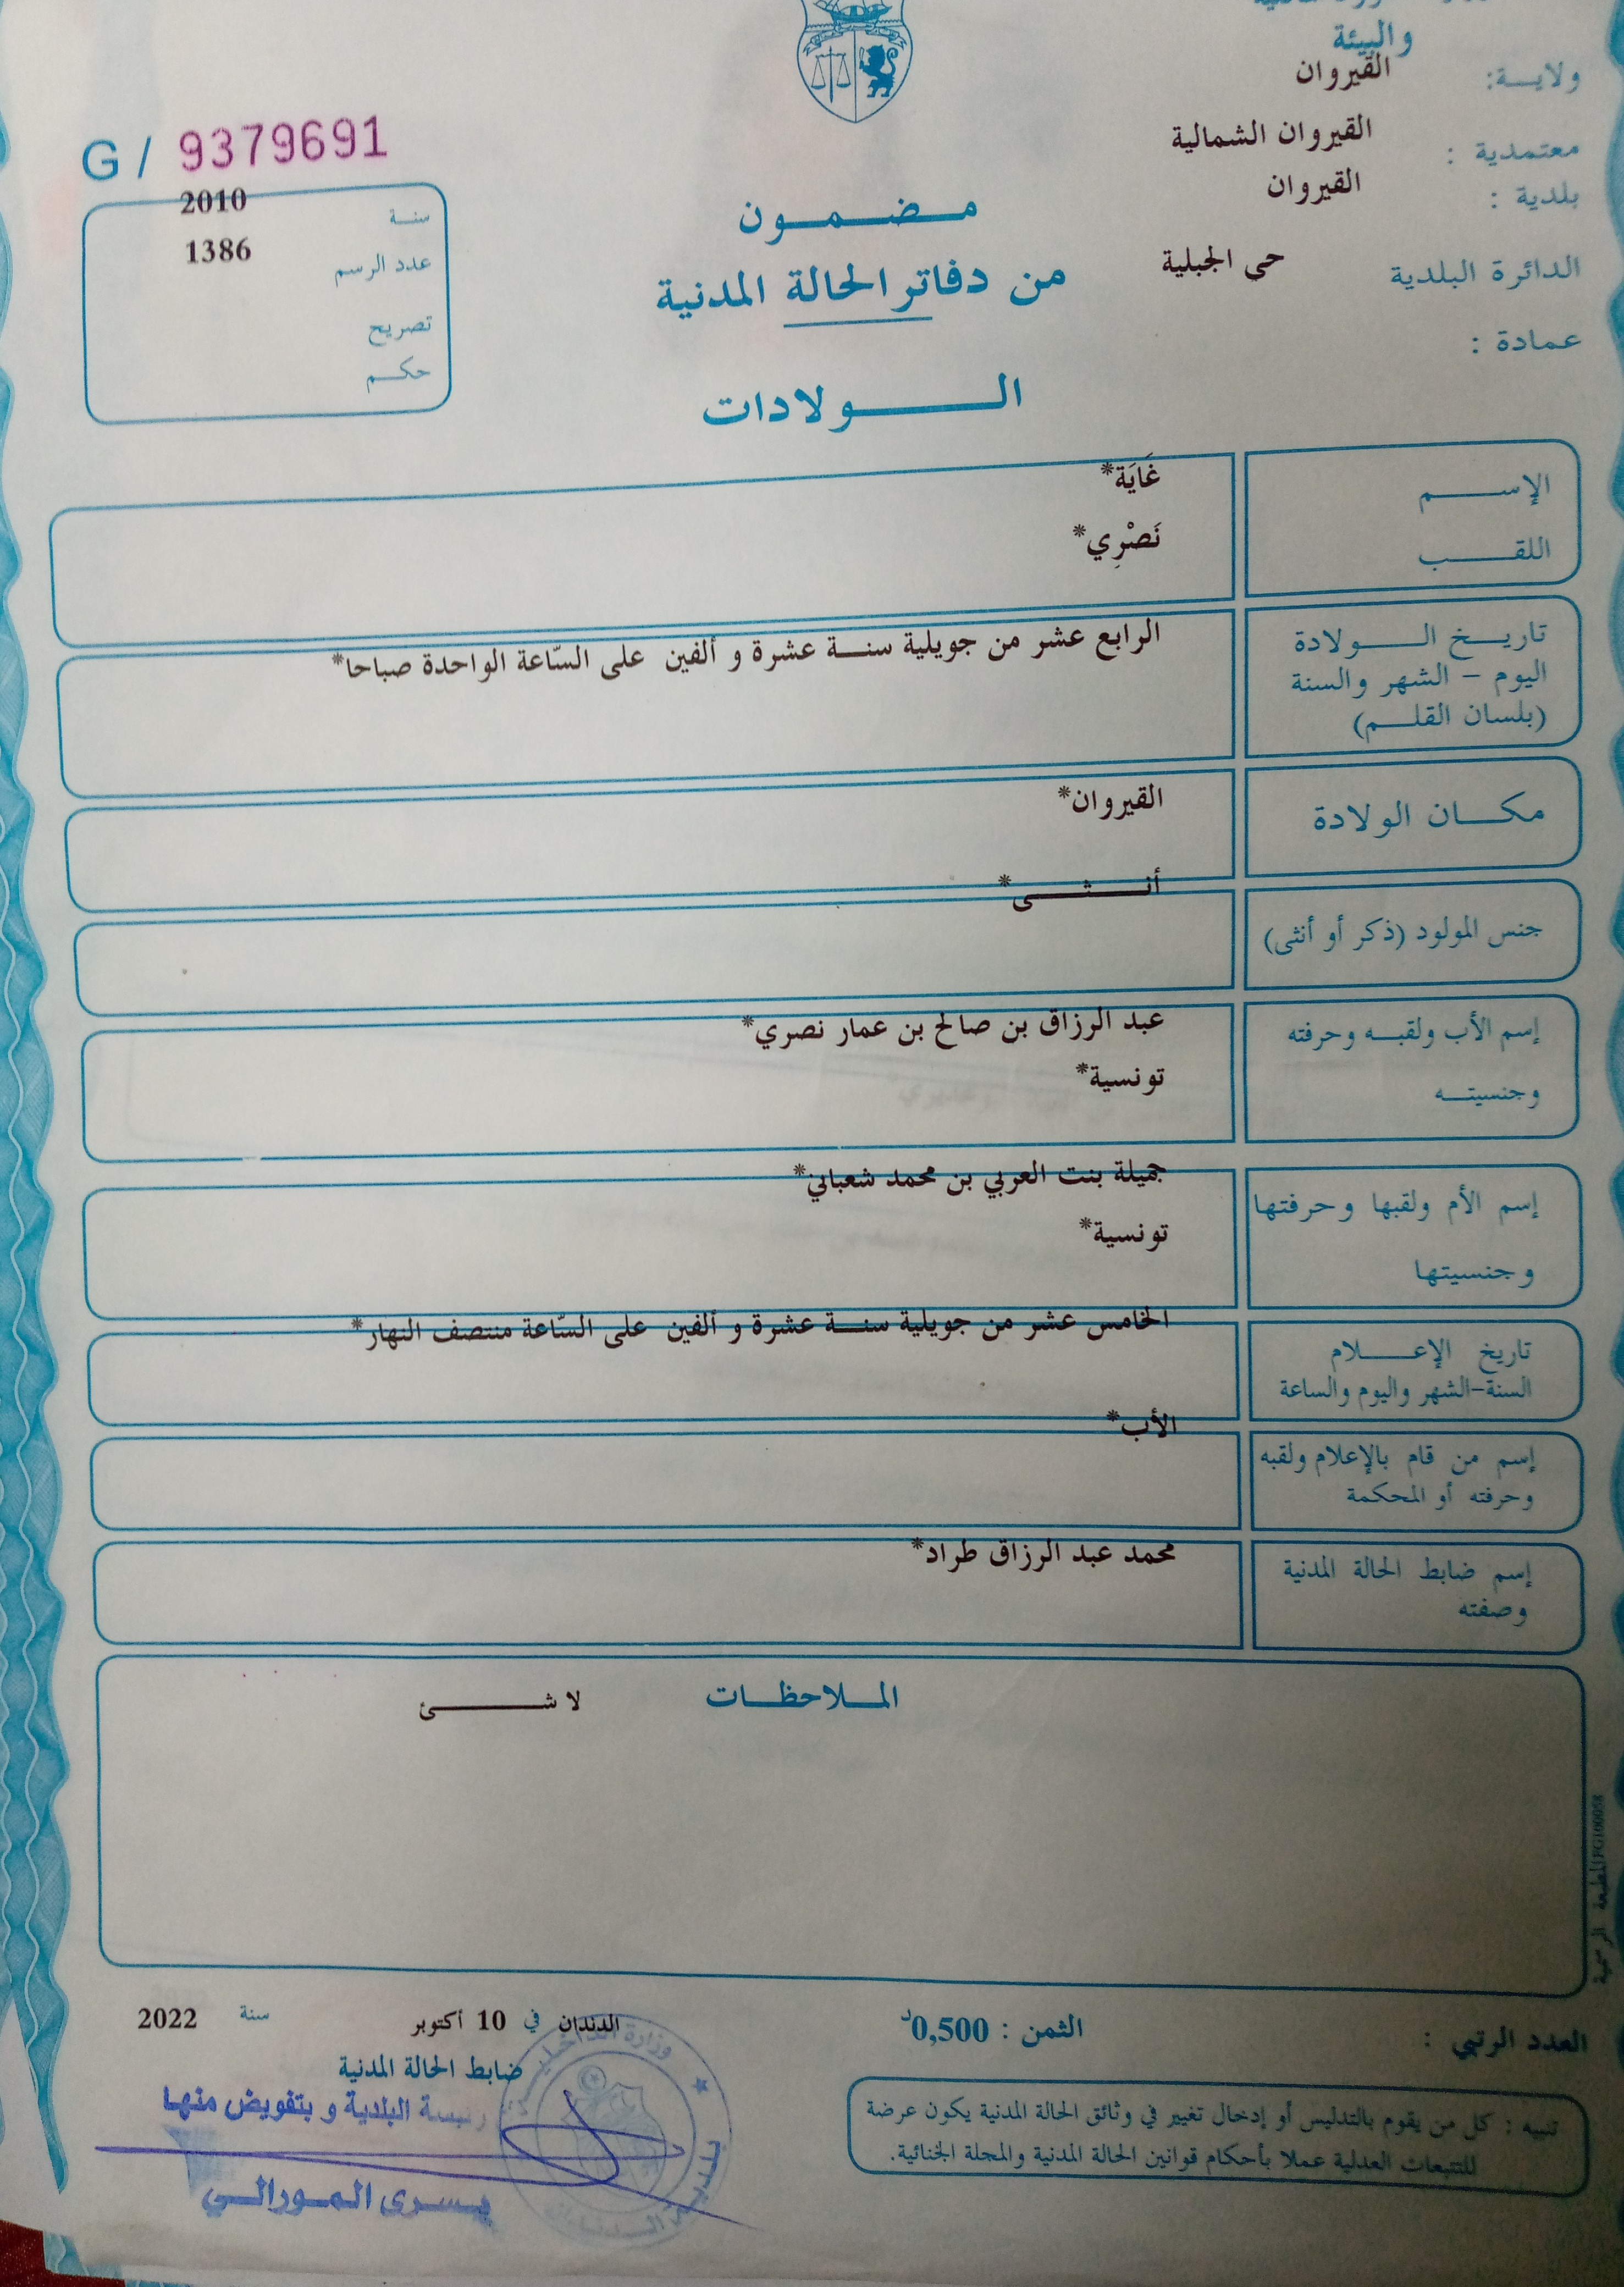 والبيئة
ولايـــة: القيروان
معتمدية : القيروان الشمالية
بلدية : القيروان
الدائرة البلدية حى الجبلية
عمادة :
G / 9379691
سنــة 2010
عدد الرسم 1386
تصريح
حكـــم
مـــضـــمـــون
من دفاتر الحالة المدنية
الـــــولادات
الإســـــم غَايَة*
اللقـــــب نَصْرِي*
تاريـــخ الـــــولادة الرابع عشر من جويلية سنــة عشرة و ألفين على السّاعة الواحدة صباحا*
اليوم – الشهر والسنة
(بلسان القلـــم)
مكـــان الولادة القيروان*
جنس المولود (ذكر أو أنثى) أنـــثـــى*
إسم الأب ولقبــه وحرفته عبد الرزاق بن صالح بن عمار نصري*
وجنسيتــه تونسية*
إسم الأم ولقبها وحرفتها جميلة بنت العربي بن محمد شعباني*
وجنسيتها تونسية*
تاريخ الإعـــــلام الخامس عشر من جويلية سنــة عشرة و ألفين على السّاعة منتصف النهار*
السنة-الشهر واليوم والساعة
إسم من قام بالإعلام ولقبه الأب*
وحرفته أو المحكمة
إسم ضابط الحالة المدنية محمد عبد الرزاق طراد*
وصفته
المـــلاحظـــات لا شـــــئ
العدد الرتبي :
الثمن : 0,500د
الدندان في 10 أكتوبر سنة 2022
ضابط الحالة المدنية
رئيسة البلدية و بتفويض منها
يـسرى المـورالـي
تنبيه : كل من يقوم بالتدليس أو إدخال تغيير في وثائق الحالة المدنية يكون عرضة
للتتبعات العدلية عملا بأحكام قوانين الحالة المدنية والمجلة الجنائية.
وزارة الداخلية
المطبعة الرسمية